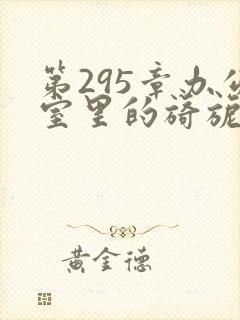 第295章办公
室里的旖旎
黄金德